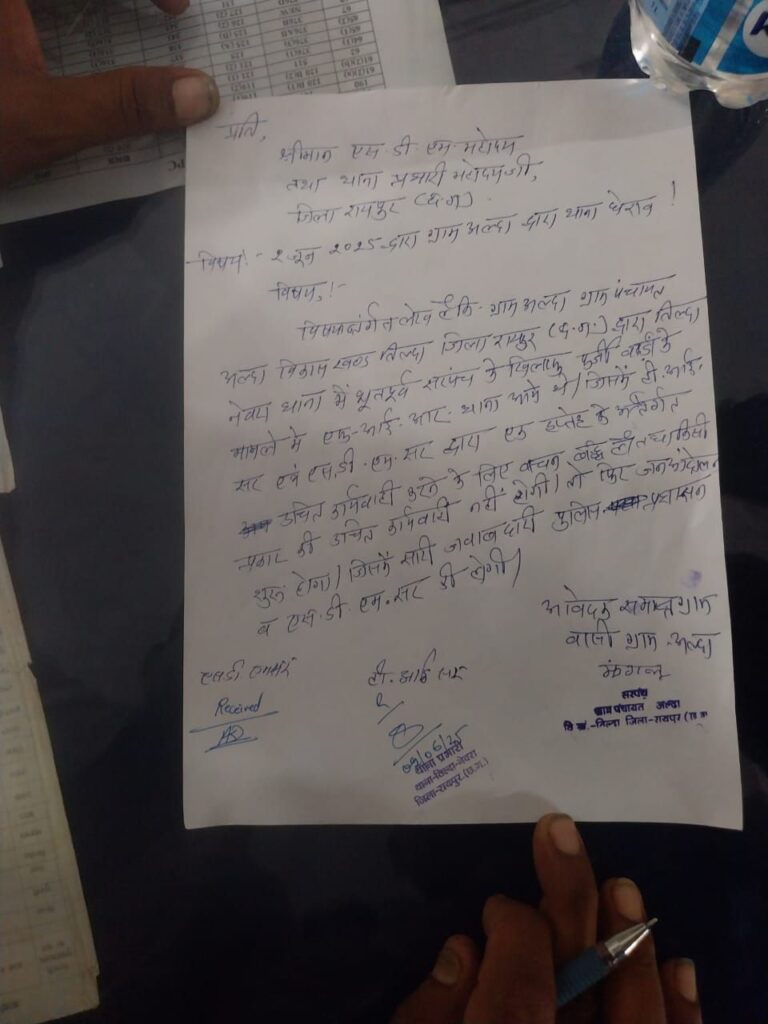 प्रति,
श्रीमान एस.डी.एम. महोदय
तथा थाना प्रभारी महोदय जी,
जिला रायपुर (छ.ग.)
विषय:- 2 जून 2025 द्वारा ग्राम अल्दा द्वारा थाना घेराव!
विषय,:-
विषयान्तर्गत लेख है कि- ग्राम अल्दा ग्राम पंचायत
अल्दा विकास खण्ड तिल्दा जिला रायपुर (छ.ग.) द्वारा तिल्दा
नेवरा थाना में भूतपूर्व सरपंच के खिलाफ फर्जी के
मामले में एफ.आई.आर. थाना आये थे। जिसमें टी.आई.
सर एवं एस.डी.एम. सर द्वारा एक हप्तेह के अंतर्गत
उचित कार्यवाही करने के लिए वचन है तथा किसी
प्रकार की उचित कार्यवाही नहीं होगी। तो फिर जनआंदोलन
शुरू होगा। जिसमें सारी जवाबदारी पुलिस प्रशासन
व एस.डी.एम. सर की होगी।
आवेदक समस्त ग्राम
वासी ग्राम-अल्दा
सरपंच
ग्राम पंचायत अल्दा
वि.ख.-तिल्दा जिला-रायपुर (छ.ग.
Received
टी.आई सर
02/06/25
थाना प्रभारी
थाना-तिल्दा-नेवरा
जिला-रायपुर (छ.ग.)